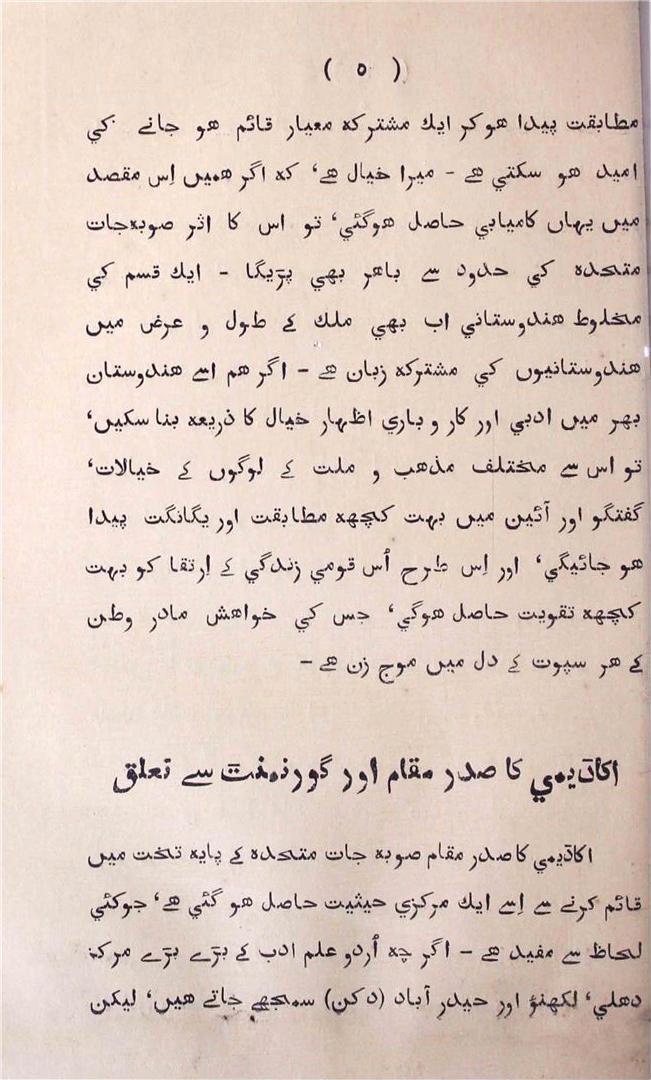 ( ٥ )
مطابقت پیدا ھوکر ایك مشترکہ معیار قائم ھو جانے کي
امید ھو سکتي ھے - میرا خیال ھے، کہ اگر ھمیں اِس مقصد
میں یہاں کامیابي حاصل ھوگئي، تو اس کا اثر صوبہجات
متحدہ کي حدود سے باھر بھي پڑیگا - ایك قسم کي
مخلوط ھندوستاني اب بھي ملك کے طول و عرض میں
ھندوستانیوں کي مشترکہ زبان ھے - اگر ھم اسے ھندوستان
بھر میں ادبي اور کار و باري اظہار خیال کا ذریعہ بنا سکیں،
تو اس سے مختلف مذھب و ملت کے لوگوں کے خیالات،
گفتگو اور آئین میں بہت کچھہ مطابقت اور یگانگت پیدا
ھو جائیگي، اور اِس طرح اُس قومي زندگي کے اِرتقا کو بہت
کچھہ تقویت حاصل ھوگي، جس کي خواھش مادر وطن
کے ھر سپوت کے دل میں موج زن ھے -
اکاڈیمي کا صدر مقام اور گورنمنٹ سے تعلق
اکاڈیمي کا صدر مقام صوبہ جات متحدہ کے پایہ تخت میں
قائم کرنے سے اِسے ایك مرکزي حیثیت حاصل ھو گئي ھے، جوکئي
لحاظ سے مفید ھے - اگر چہ اُردو علم ادب کے بڑے بڑے مرکز
دھلي، لکھنؤ اور حیدر آباد (دکن) سمجھے جاتے ھیں، لیکن